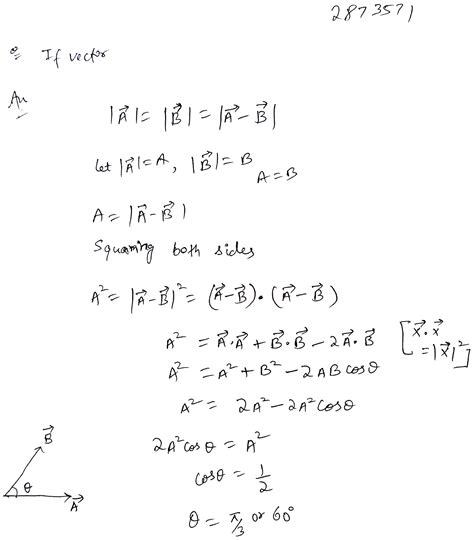 2873571
Q: If vector
An
|A⃗| = |B⃗| = |A⃗ - B⃗|
let |A⃗| = A, |B⃗| = B
A = B
A = |A⃗ - B⃗|
Squaring both sides
A² = |A⃗ - B⃗|² = (A⃗ - B⃗) • (A⃗ - B⃗)
A² = A⃗ • A⃗ + B⃗ • B⃗ - 2A⃗ • B⃗ [x⃗ • x⃗
= |x⃗|²]
A² = A² + B² - 2AB cosθ
A² = 2A² - 2A² cosθ
2A² cosθ = A²
cosθ = 1/2
θ = π/3 or 60°
B⃗
θ
A⃗